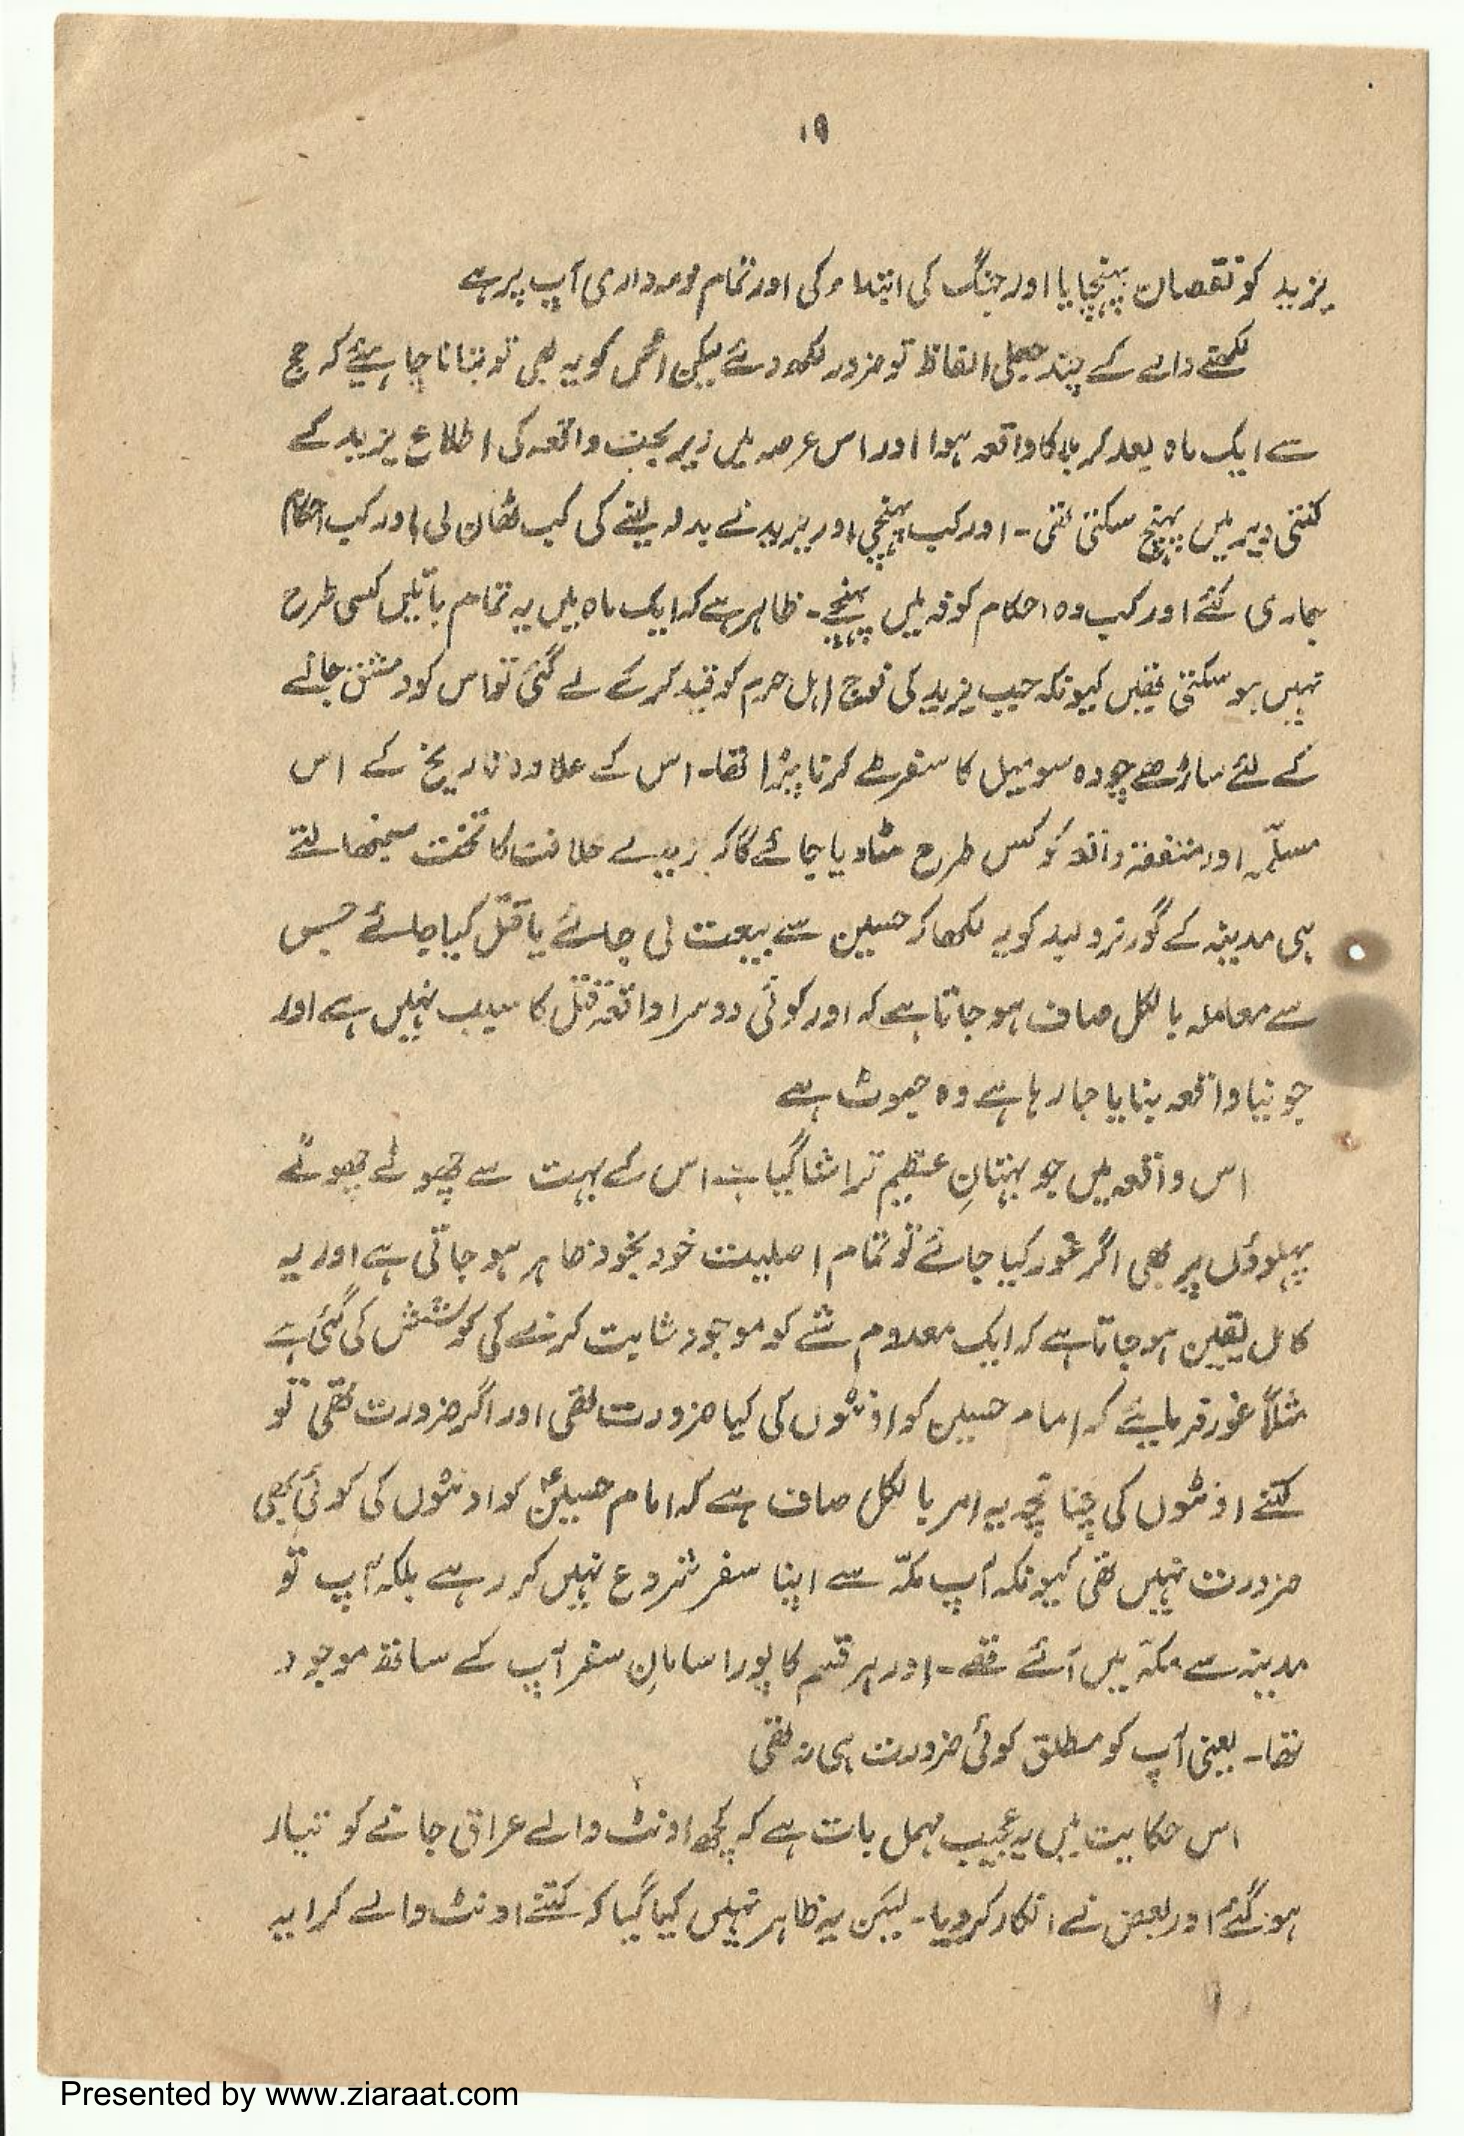 ۱۹
یزید کو نقصان پہنچایا اور جنگ کی ابتداء کی اور تمام ذمہ داری آپ پر ہے
لکھنے والے کے چند جعلی الفاظ تو ضرور لکھ دئے لیکن اس کو یہ بھی تو بتانا چاہیئے کہ حج
سے ایک ماہ بعد کربلا کا واقعہ ہوا اور اس عرصہ میں زیر بحث واقعہ کی اطلاع یزید کے
کتنی دیر میں پہنچ سکتی تھی۔ اور کب پہنچی اور یزید نے بدلہ لینے کی کب ٹھان لی اور کب احکام
جاری کئے اور کب وہ احکام کوفہ میں پہنچے۔ ظاہر ہے کہ ایک ماہ میں یہ تمام باتیں کسی طرح
نہیں ہو سکتی تھیں کیونکہ جب یزید کی فوج اہل حرم کو قید کر کے لے گئی تو اس کو دمشق جانے
کے لئے ساڑھے چودہ سو میل کا سفر طے کرنا پڑا تھا۔ اس کے علاوہ تاریخ کے اس
مسلّمہ اور متفقہ واقعہ کو کس طرح مٹا دیا جائے گا کہ یزید نے خلافت کا تخت سنبھالتے
ہی مدینہ کے گورنر ولید کو یہ لکھا کہ حسین سے بیعت لی جائے یا قتل کیا جائے جس
سے معاملہ بالکل صاف ہو جاتا ہے کہ اور کوئی دوسرا واقعہ قتل کا سبب نہیں ہے اور
جو نیا واقعہ بنایا جا رہا ہے وہ جھوٹ ہے
اس واقعہ میں جو بہتانِ عظیم تراشا گیا ہے اس کے بہت سے چھوٹے چھوٹے
پہلوؤں پر بھی اگر غور کیا جائے تو تمام اصلیت خود بخود ظاہر ہو جاتی ہے اور یہ
کامل یقین ہو جاتا ہے کہ ایک معدوم شے کو موجود ثابت کرنے کی کوشش کی گئی ہے
مثلاً غور فرمایئے کہ امام حسین کو اونٹوں کی کیا ضرورت تھی اور اگر ضرورت تھی تو
کتنے اونٹوں کی چنانچہ یہ امر بالکل صاف ہے کہ امام حسینؑ کو اونٹوں کی کوئی بھی
ضرورت نہیں تھی کیونکہ آپ مکہّ سے اپنا سفر شروع نہیں کر رہے بلکہ آپ تو
مدینہ سے مکہّ میں آئے تھے۔ اور ہر قسم کا پورا سامانِ سفر آپ کے ساتھ موجود
تھا۔ یعنی آپ کو مطلق کوئی ضرورت ہی نہ تھی
اس حکایت میں یہ عجیب مہمل بات ہے کہ کچھ اونٹ والے عراق جانے کو تیار
ہو گئے اور بعض نے انکار کر دیا۔ لیکن یہ ظاہر نہیں کیا گیا کہ کتنے اونٹ والے کرایہ
Presented by www.ziaraat.com